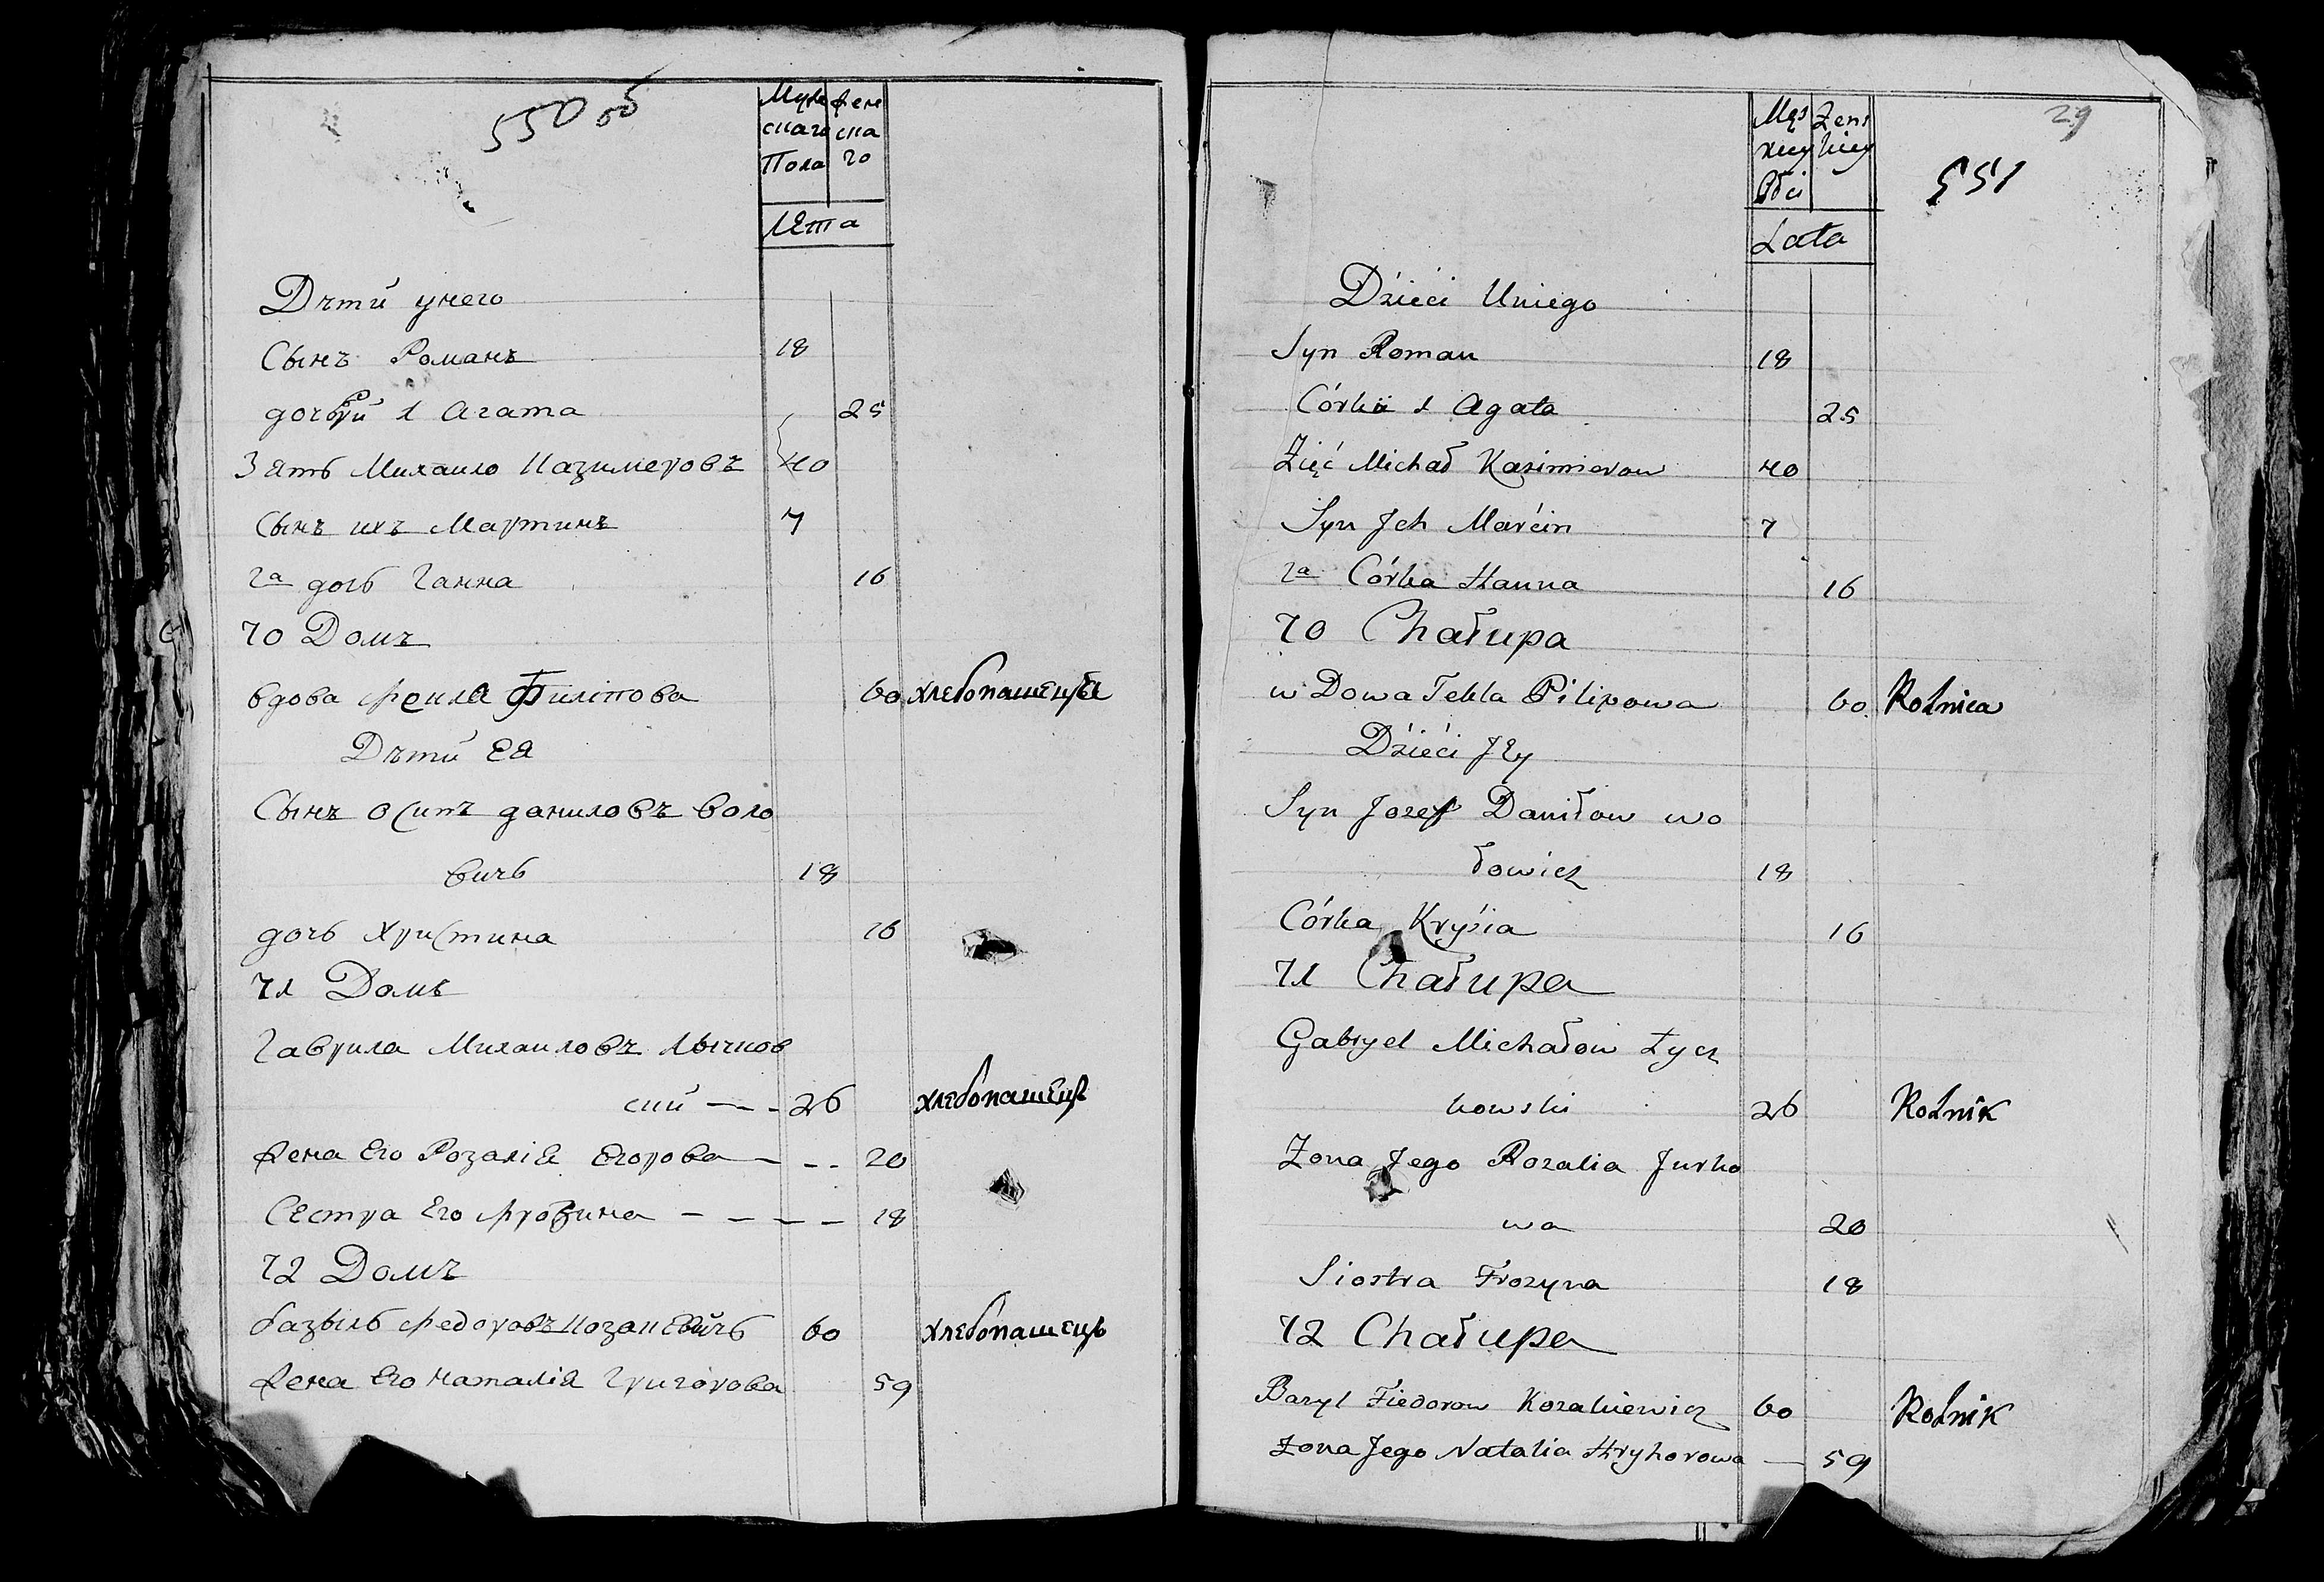 550 об
Муже Жен
скаго ска
Пола го
Лета
Дѣти унего
Сынъ Романъ 18
1 Агата 25
Зять Михаило Казимеровъ 40
Сынъ ихъ Мартинъ 7
2а дочь Ганна 16
70 Домъ
вдова Фекла Филипова 60 хлебопашецъ
Дѣти Ея
Сынъ Осипъ Даниловъ Воло
вичь 18
дочь Христина 16
71 Домъ
Гаврила Михаиловъ Лычков
ский 26 хлебопашецъ
Жена Его Розалія Егорова 20
Сестра Его Фрозина 18
72 Домъ
Базыль Федоровъ Козакевичь 60 хлебопашецъ
Жена Его Наталія Григорова 59
29
551
Męs Zens
kiey kiey
Płci
Lata
Dzieci Uniego
Syn Roman 18
Córki 1 Agata 25
Zięć Michał Kazimierow 40
Syn Jch Marcin 7
2a Córka Hanna 16
70 Chałupa
wDowa Tekla Pilipowa 60 Rolnica
Dzieci Jey
Syn Jozef Daniłow wo
łowicz 18
Córka Krysia 16
71 Chałupa
Gabryel Michałow Łycz
kowski 26 Rolnik
Zona Jego Rozalia Jurko
wa 20
Siostra Frozyna 18
72 Chałupa
Bazyl Fiedorow Kozakiewicz 60 Rolnik
Zona Jego Natalia Hryhorowa 59